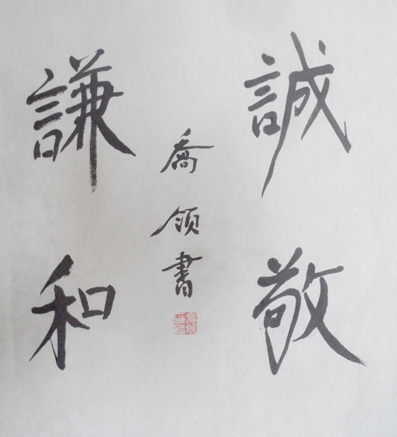 誠敬
謙和
喬領書